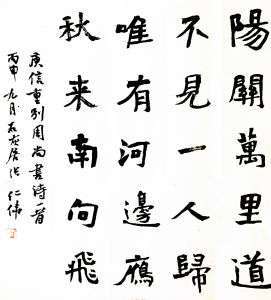 陽關萬里道
不見一人歸
唯有河邊鴈
秋来南向飛
庾信重别周尚書诗一首
丙申九月
仁偉